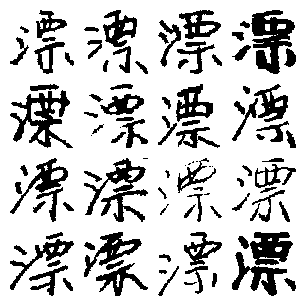 漂漂漂漂
漂漂漂漂
漂漂漂漂
漂漂漂漂